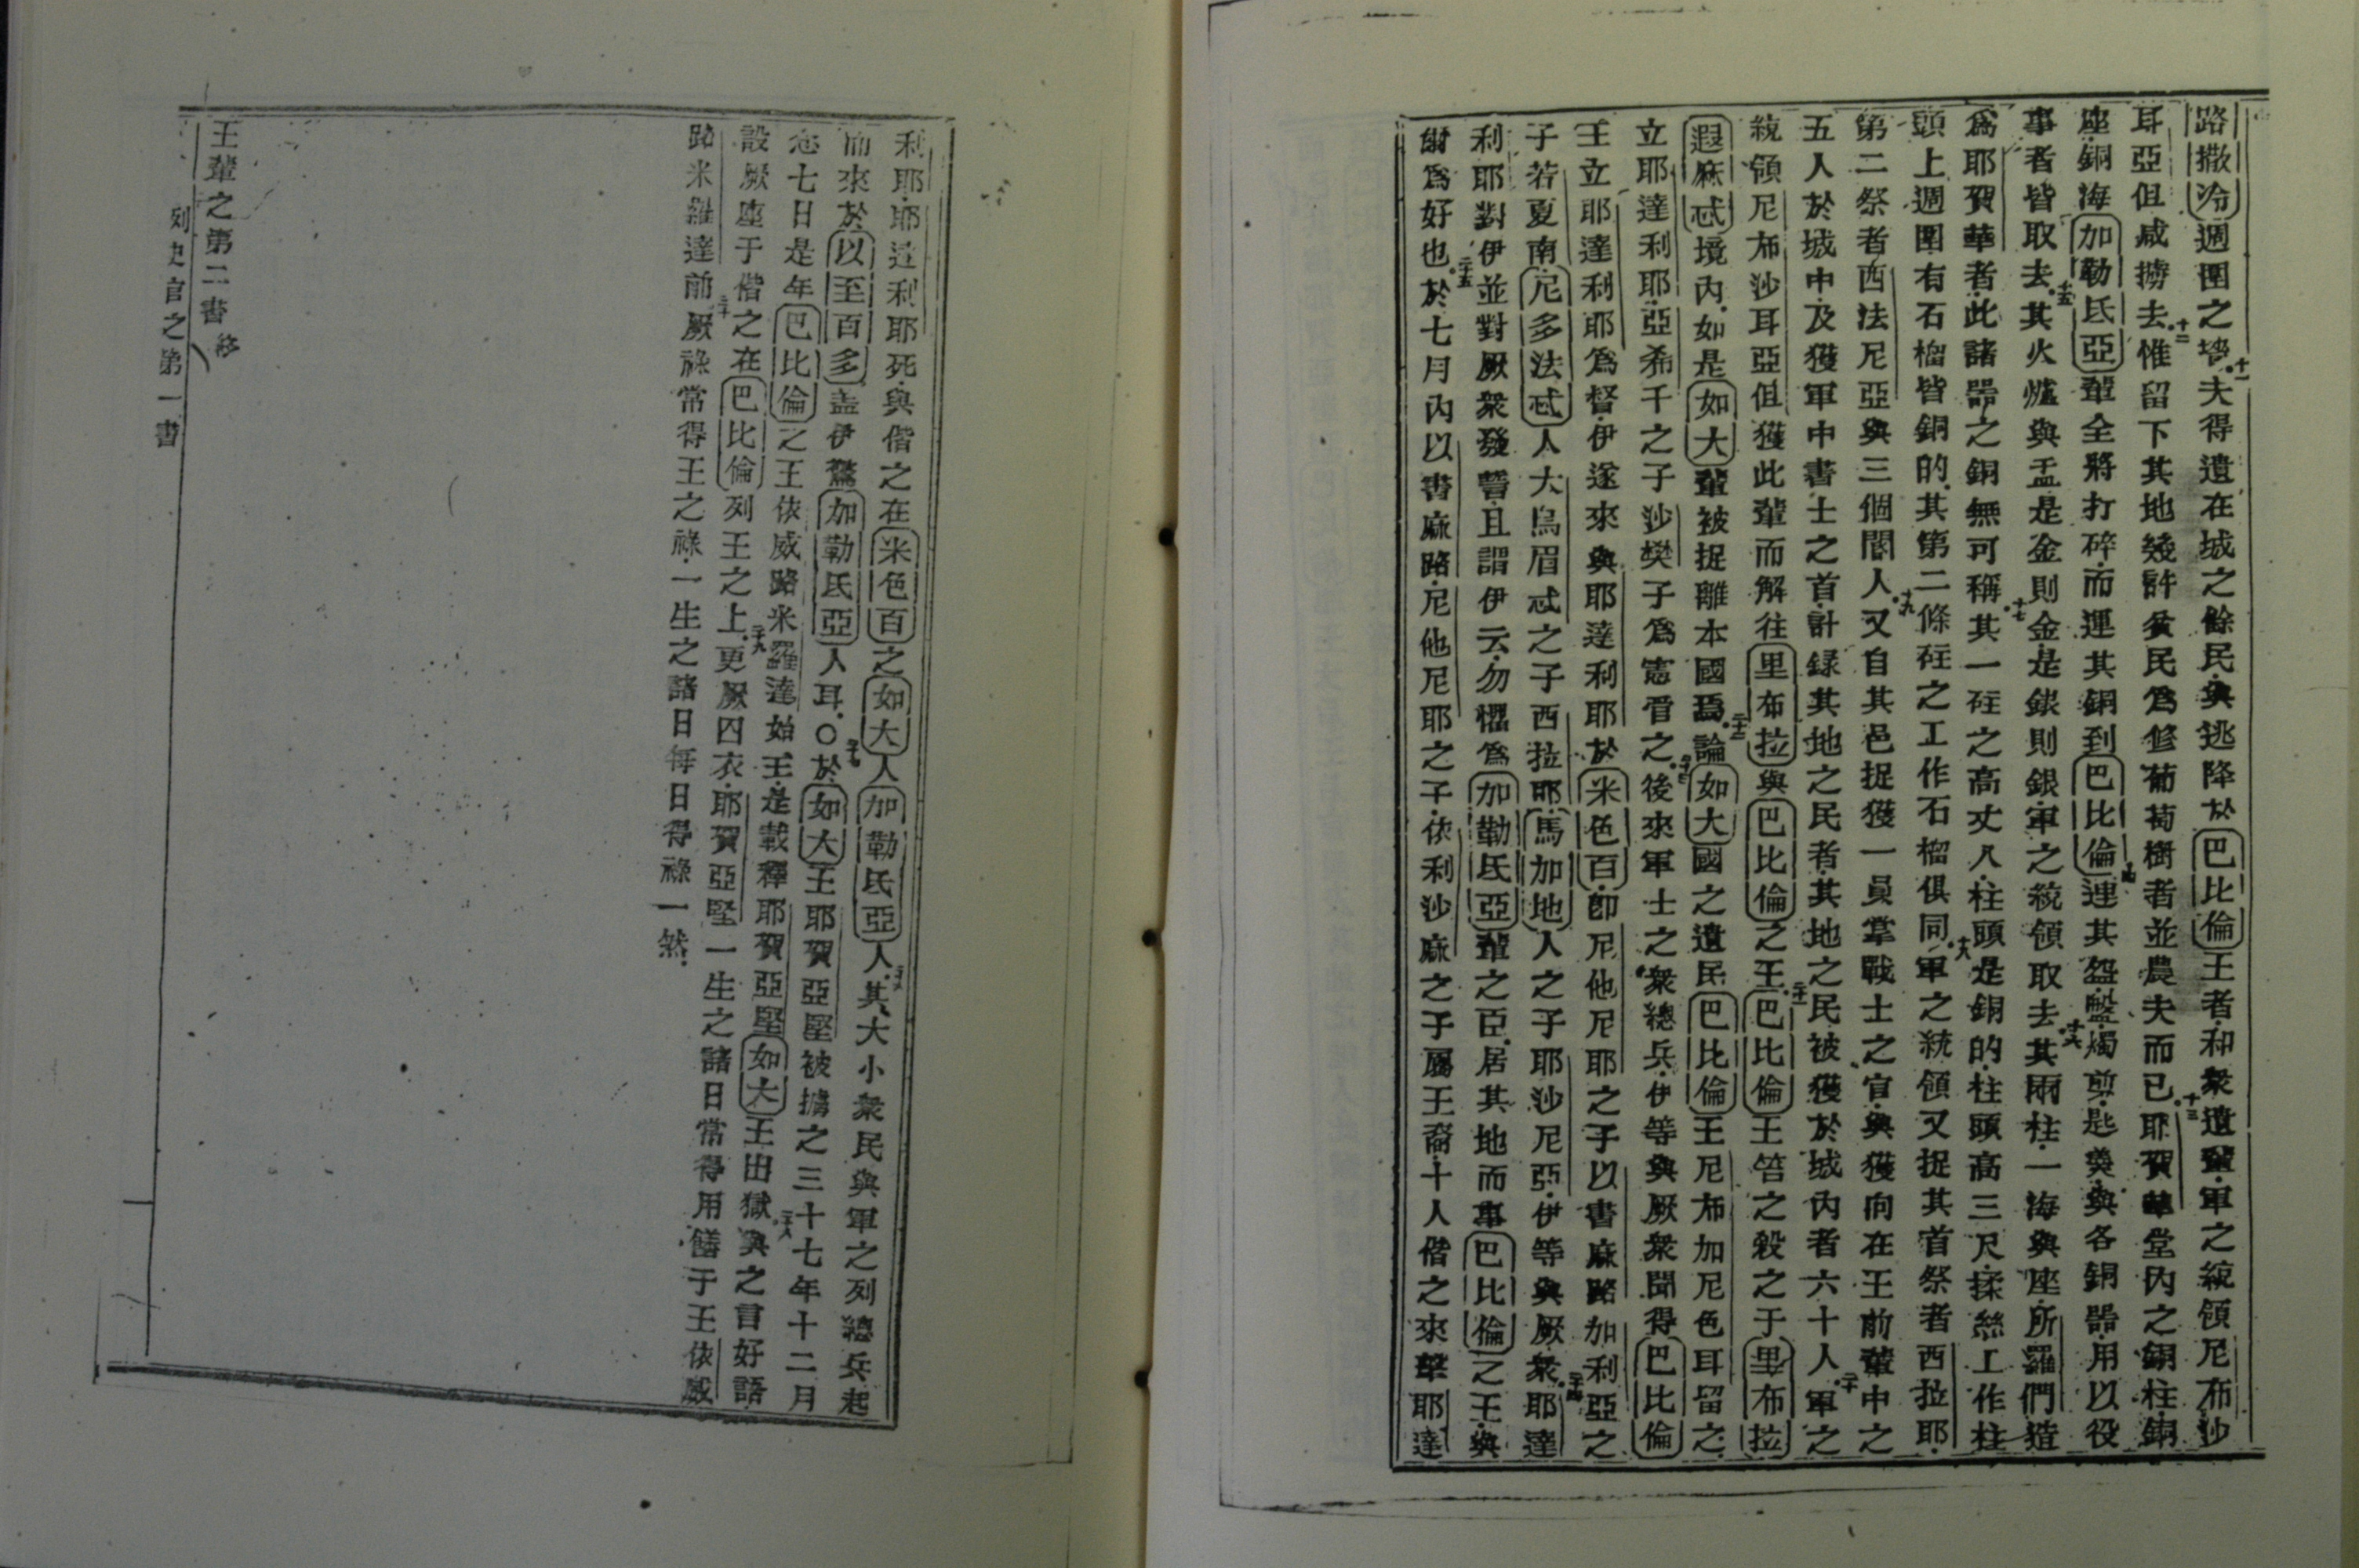 路撒冷週圍之墻十一夫得遺在城之餘民與逃降於巴比倫王者和衆遺輩軍之統領尼布沙
耳亞但咸擄去十二惟留下其地幾許貧民爲修葡萄樹者並農夫而已十三耶賀華堂內之銅柱銅
座銅海加勒氏亞輩全將打碎而運其銅到巴比倫十四連其盤燭剪匙羹與各銅器用以役
事者皆取去十五其火爐與盂是金則金是銀則銀軍之統領取去十六其兩柱一海與座所羅們造
爲耶賀華者此諸器之銅無可稱十七其一砫之高丈八柱頭是銅的柱頭高三尺揉絲工作柱
頭上週圍有石榴皆銅的其第二條砫之工作石榴俱同十八軍之統領又捉其首祭者西拉耶
第二祭者西法尼亞與三個閽人十九又自其邑捉獲一員掌戰士之官與獲向在王前輩中之
五人於城中及獲軍中書士之首計録其地之民者其地之民被獲於城內者六十人二十軍之
統領尼布沙耳亞但獲此輩而解往里布拉與巴比倫之王二十一巴比倫王笞之殺之于里布拉
遐麻忒境內如是如大輩被捉離本國焉二十二論如大國之遺民巴比倫王尼布加尼色耳留之
立耶達利耶亞希千之子沙樊子爲憲督之二十三後來軍士之衆總兵伊等與厥衆聞得巴比倫
王立耶達利耶爲督伊遂來與耶達利耶於米色百卽尼他尼耶之子以書麻路加利亞之
子若夏南尼多法忒人大鳥眉忒之子西拉耶馬加地人之子耶沙尼亞伊等與厥衆二十四耶達
利耶對伊並對厥衆發誓且謂伊云勿懼爲加勒氏亞輩之臣居其地而事巴比倫之王與
爾爲好也二十五於七月內以書麻路尼他尼耶之子依利沙麻之子屬王裔十人偕之來擊耶達
利耶耶達利耶死與偕之在米色百之如大人加勒氏亞人二十六其大小衆民與軍之列總兵起
而來於以至百多盖伊驚加勒氏亞人耳〇二十七於如大王耶賀亞堅被擄之三十七年十二月
念七日是年巴比倫之王依威路米羅達始王是載釋耶賀亞堅如大王出獄二十八與之言好語
設厥座于偕之在巴比倫列王之上二十九更厥囚衣耶賀亞堅一生之諸日常得用饍于王依威
路米羅達前三十厥祿常得王之祿一生之諸日每日得祿一然
王輩之第二書終
列史官之第一書